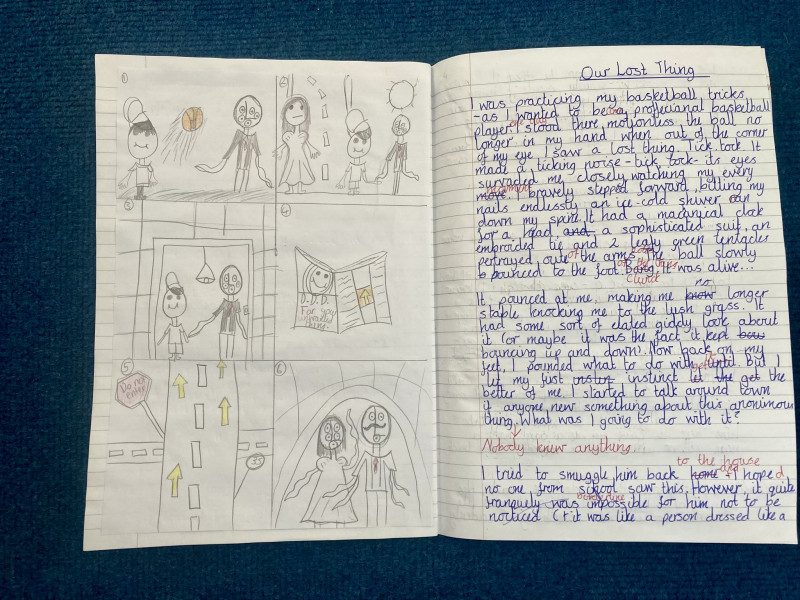 1
2
3
4
D.D.D.
For your
unwanted
thing.
5
Do not
enter
35
6
Our Lost Thing
I was practicing my basketball tricks
-as I wanted to be a proficianal basketball
player. I stood there, motionless, the ball no
one day
longer in my hand when out of the corner
of my eye I saw a lost thing. Tick, tock. It
made a ticking noise - tick, tock - its eyes
survaded me, closely watching my every
movement
move. I bravely stepped forward, biting my
nails endlessly an ice-cold shiver ran
down my spine. It had a macanical clock
for a head and a sophisticated suit, an
embroided tie and 2 leafy green tentacles
portrayed out of the arms. The ball slowly
bounced to the foot. It was alive...
It pounced at me, making me know longer
no
stable knocking me to the lush grass. It
had some sort of elated giddy look about
it (or maybe it was the fact it kept
bouncing up and down). Now back on my
feet, I pounded what to do with until. But I
let my just instinct let the get the
better of me. I started to talk around town
if anyone new something about this anonimous
thing. What was I going to do with it?
Nobody knew anything.
to the house
I tried to smuggle him back home + I hoped
no one from school saw this. However, it quite
franquely was impossible for him not to be
norticed (+ it was like a person dressed like a